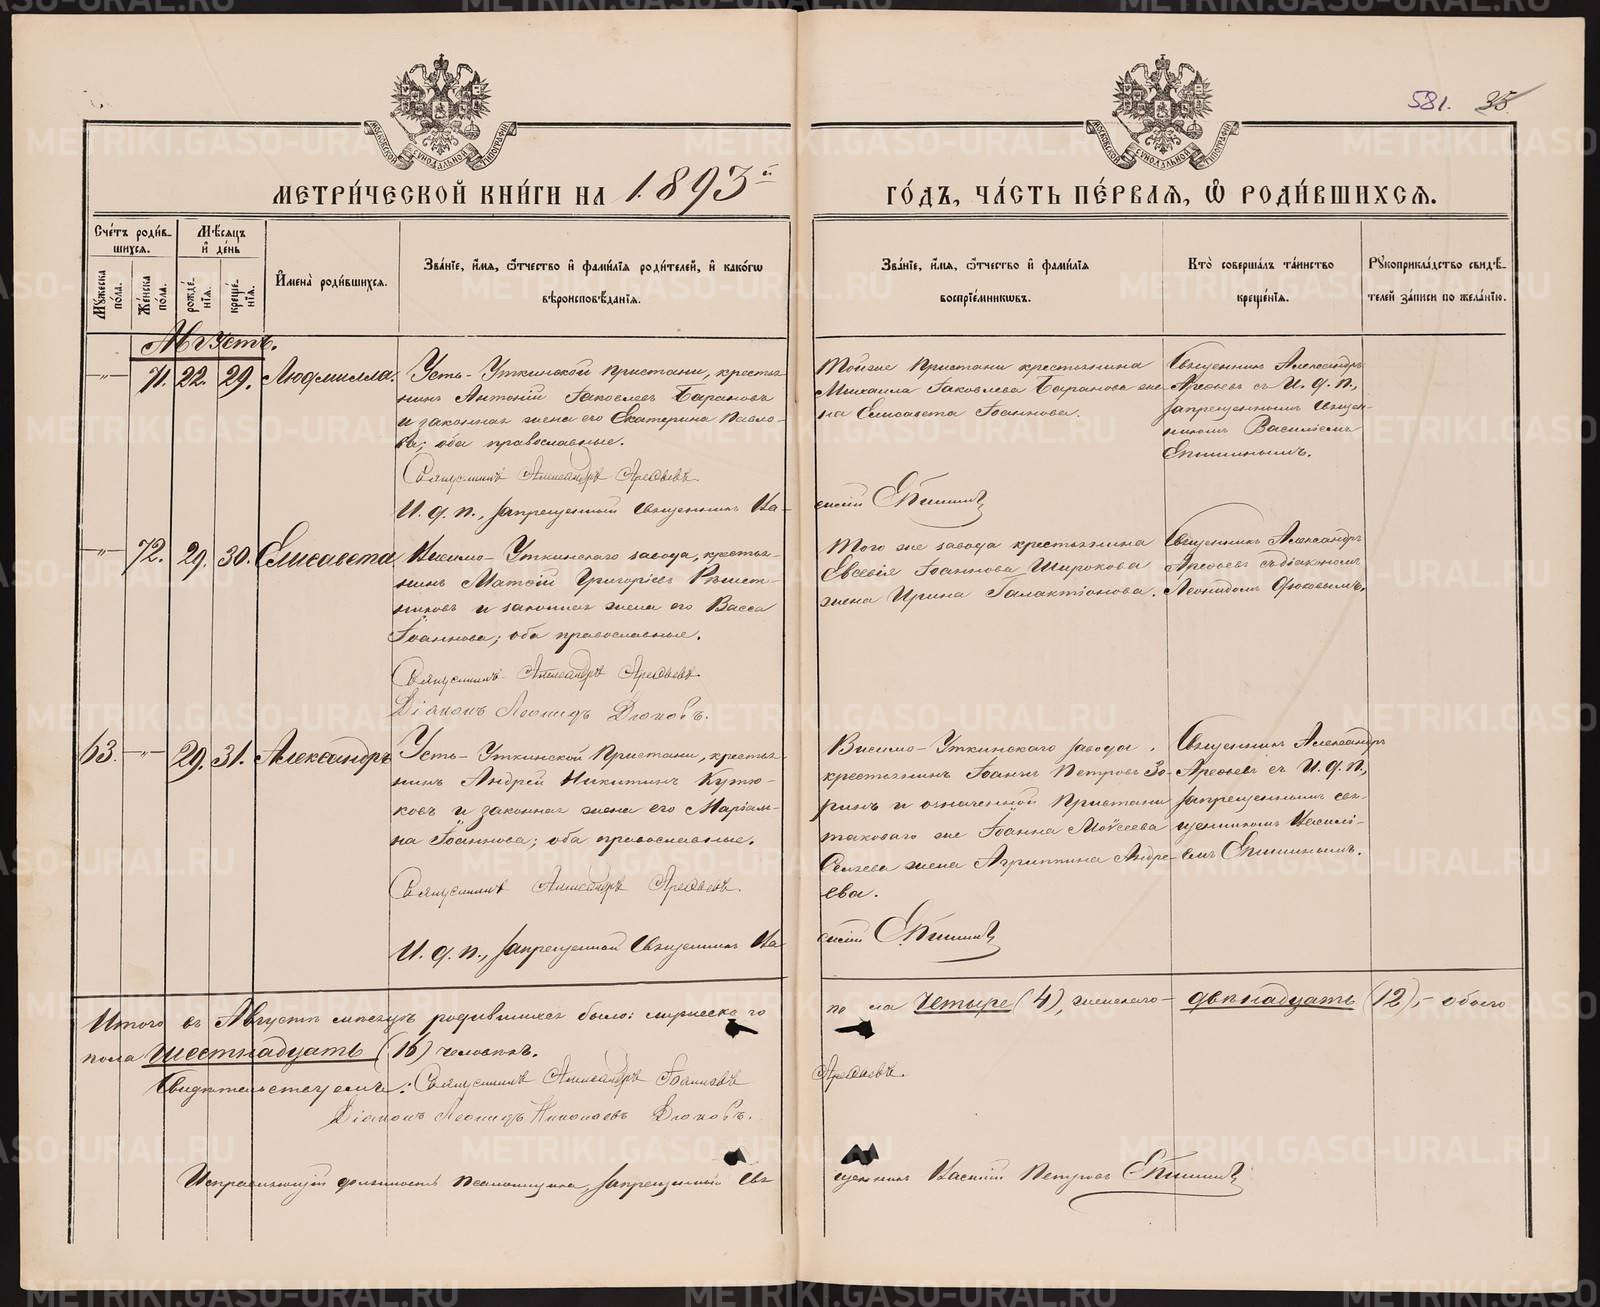 581. 35
МОСКОВСКОЙ СѴНОДАЛЬНОЙ ТИПОГРАФІИ
МОСКОВСКОЙ СѴНОДАЛЬНОЙ ТИПОГРАФІИ
МЕТРИ́ЧЕСКОЙ КНИ́ГИ НА 1893й
ГО́ДЪ, ЧА́СТЬ ПЕ́РВАЯ, Ѡ҆ РОДИ́ВШИХСЯ.
Счётъ роди́вшихся.
Му́жеска по́ла.
Же́нска по́ла.
Мѣ́сяцъ и҆ де́нь
рожде́нїя.
креще́нїя.
И҆мена̀ роди́вшихся.
Зва́нїе, и҆́мя, ѻ҆́тчество и҆ фами́лїя роди́телей, и҆ како́гѡ
вѣроисповѣ́данїя.
Зва́нїе, и҆́мя, ѻ҆́тчество и҆ фами́лїя
воспрїе́мникѡвъ.
Кто̀ соверша́лъ та́инство
креще́нїя.
Рꙋкоприкла́дство свидѣ́-
телей за́писи по жела́нїю.
Августъ.
—„— 71. 22. 29. Людмилла.
Усть-Уткинской Пристани, кресть-
нинъ Антоній Іаковлевъ Барановъ
и законная жена его Екатерина Павло-
ва; оба православные.
Священникъ Александръ Арефьевъ
И. д. п., запрещенный Священникъ Ва-
Тойже Пристани крестьянина
Михаила Іаковлева Баранова же-
на Елисавета Іоаннова.
силій Епишинъ
Священникъ Александръ
Арефьевъ съ И. д. п.,
запрещеннымъ Священ-
никомъ Василіемъ
Епишинымъ.
—„— 72. 29. 30. Елисавета
Висимо-Уткинскаго завода, кресть-
нинъ Матѳій Григоріевъ Рѣшет-
никовъ и законная жена его Васса
Іоаннова; оба православные.
Священникъ Александръ Арефьевъ
Діаконъ Леонидъ Дюковъ.
Того же завода крестьянина
Евсевія Іоаннова Широкова
жена Ирина Галактіонова.
Священникъ Александръ
Арефьевъ съ діакономъ
Леонидомъ Дюковымъ.
63. —„— 29. 31. Александръ
Усть-Уткинской Пристани, кресть-
нинъ Андрей Никитинъ Кутю-
ковъ и законная жена его Маріам-
на Іоаннова; оба православные.
Священникъ Александръ Арефьевъ.
И. д. п., запрещенный Священникъ Ва
Висимо-Уткинскаго завода
крестьянинъ Іоаннъ Петровъ Зо-
ринъ и означенной Пристани
таковаго же Іоанна Моѵсеева
жена Агриппина Андре-
ева.
силій Епишинъ
Священникъ Александръ
Арефьевъ съ И. д. п.,
запрещеннымъ свя-
щенникомъ Васили-
емъ Епишинымъ.
Итого въ Августѣ мѣсяцѣ родившихся было: мужеско го
по ла четыре (4), женскаго – двѣнадцать (12), – обоего
пола шестнадцать (16) человѣкъ.
Свидѣтельствуемъ: Священникъ Александръ Іоанновъ
Арефьевъ.
Діаконъ Леонидъ Николаевъ Дюковъ.
Исправляющій должность псаломщика, запрещенный Свя
щенникъ Василій Петровъ Епишинъ
METRIKI.GASO-URAL.RU